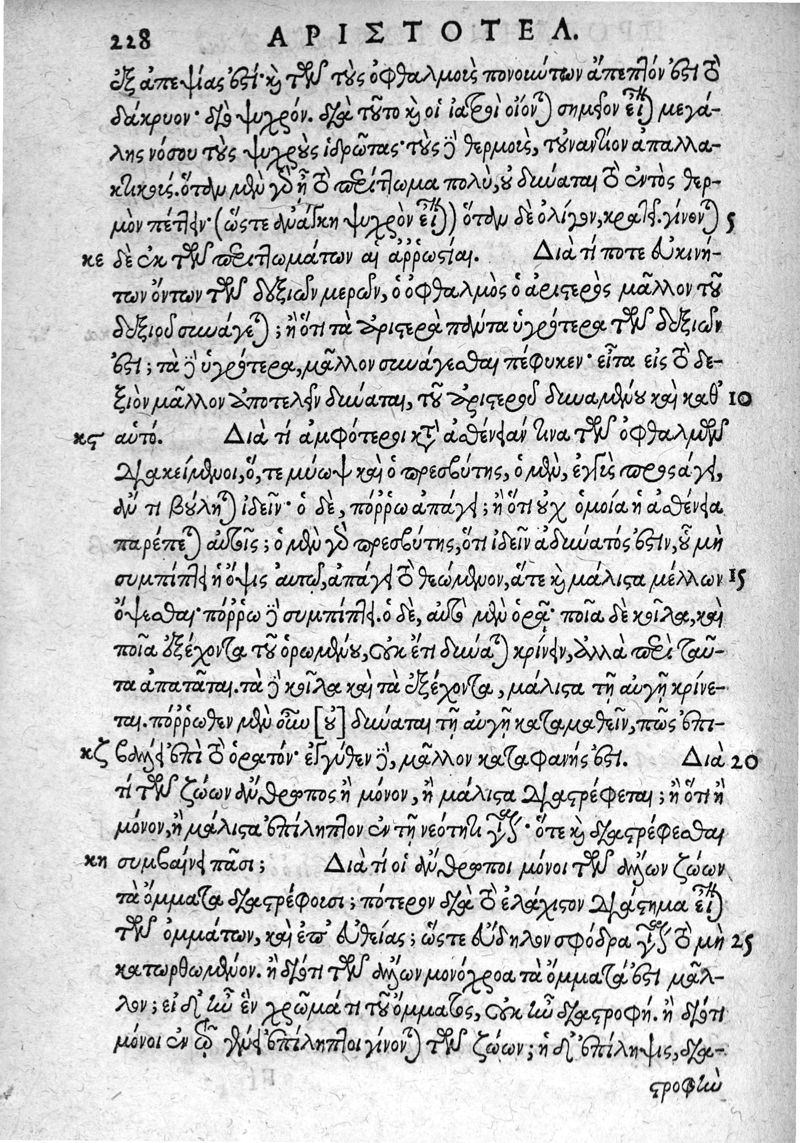 228 ΑΡΙΣΤΟΤΕΛ.
ἐξ ἀπεψίας ἐστί· καὶ τῶν τοὺς ὀφθαλμοὺς πονούντων ἄπεπτόν ἐστι τὸ
δάκρυον· διὸ ψυχρόν. διὰ τοῦτο καὶ οἱ ἰατροὶ οἴονται σημεῖον εἶναι μεγά-
λης νόσου τοὺς ψυχροὺς ἱδρῶτας· τοὺς δὲ θερμοὺς, τοὐναντίον ἀπαλλα-
κτικούς. ὅταν μὲν γὰρ ᾖ τὸ περίττωμα πολὺ, οὐ δύναται τὸ ἐντὸς θερ-
μὸν πέττειν· (ὥστε ἀνάγκη ψυχρὸν εἶναι) ὅταν δὲ ὀλίγον, κρατεῖ. γίνονται 5
κε δὲ ἐκ τῶν περιττωμάτων αἱ ἀῤῥωστίαι. Διὰ τί ποτε εὐκινή-
των ὄντων τῶν δεξιῶν μερῶν, ὁ ὀφθαλμὸς ὁ ἀριστερὸς μᾶλλον τοῦ
δεξιοῦ συνάγεται; ἢ ὅτι τὰ ἀριστερὰ πάντα ὑγρότερα τῶν δεξιῶν
ἐστι; τὰ δὲ ὑγρότερα, μᾶλλον συνάγεσθαι πέφυκεν· εἶτα εἰς τὸ δε-
ξιὸν μᾶλλον ἀποτελεῖν δύναται, τοῦ ἀριστεροῦ δυναμένου καὶ καθ' 10
κς αὑτό. Διὰ τί ἀμφότεροι κατ' ἀσθένειάν τινα τῶν ὀφθαλμῶν
διακείμενοι, ὅ, τε μύωψ καὶ ὁ πρεσβύτης, ὁ μὲν, ἐγγὺς προσάγει,
ἄν τι βούληται ἰδεῖν· ὁ δὲ, πόῤῥω ἀπάγει; ἢ ὅτι οὐχ ὁμοία ἡ ἀσθένεια
παρέπεται αὐτοῖς; ὁ μὲν γὰρ πρεσβύτης, ὅτι ἰδεῖν ἀδύνατός ἐστιν, οὗ μὴ
συμπίπτει ἡ ὄψις αὐτῷ, ἀπάγει τὸ θεώμενον, ἅτε καὶ μάλιστα μέλλων 15
ὄψεσθαι· πόῤῥω δὲ συμπίπτει. ὁ δὲ, αὐτὸ μὲν ὁρᾷ· ποῖα δὲ κοῖλα, καὶ
ποῖα ἐξέχοντα τοῦ ὁρωμένου, οὐκ ἔτι δύναται κρίνειν, ἀλλὰ περὶ ταῦ-
τα ἀπατᾶται. τὰ δὲ κοῖλα καὶ τὰ ἐξέχοντα, μάλιστα τῇ αὐγῇ κρίνε-
ται. πόῤῥωθεν μὲν οὖν [οὐ] δύναται τῇ αὐγῇ καταμαθεῖν, πῶς ἐπι-
κζ βάλλει ἐπὶ τὸ ὁρατόν· ἐγγύθεν δὲ, μᾶλλον καταφανής ἐστι. Διὰ 20
τί τῶν ζώων ἄνθρωπος ἢ μόνον, ἢ μάλιστα διαστρέφεται; ἢ ὅτι ἢ
μόνον, ἢ μάλιστα ἐπίληπτον ἐν τῇ νεότητι γίνεται· ὅτε καὶ διαστρέφεσθαι
κη συμβαίνει πᾶσι; Διὰ τί οἱ ἄνθρωποι μόνοι τῶν ἄλλων ζώων
τὰ ὄμματα διαστρέφουσι; πότερον διὰ τὸ ἐλάχιστον διάστημα εἶναι
τῶν ὀμμάτων, καὶ ἐπ' εὐθείας; ὥστε εὔδηλον σφόδρα γίνεται τὸ μὴ 25
κατωρθωμένον. ἢ διότι τῶν ἄλλων μονόχροα τὰ ὄμματά ἐστι μᾶλ-
λον; εἰ δ' ἦν ἓν χρῶμά τι τοῦ ὄμματος, οὐκ ἦν διαστροφή. ἢ διότι
μόνοι ἐν τῷ γένει ἐπίληπτοι γίνονται τῶν ζώων; ἡ δ' ἐπίληψις, δια-
στροφὴν